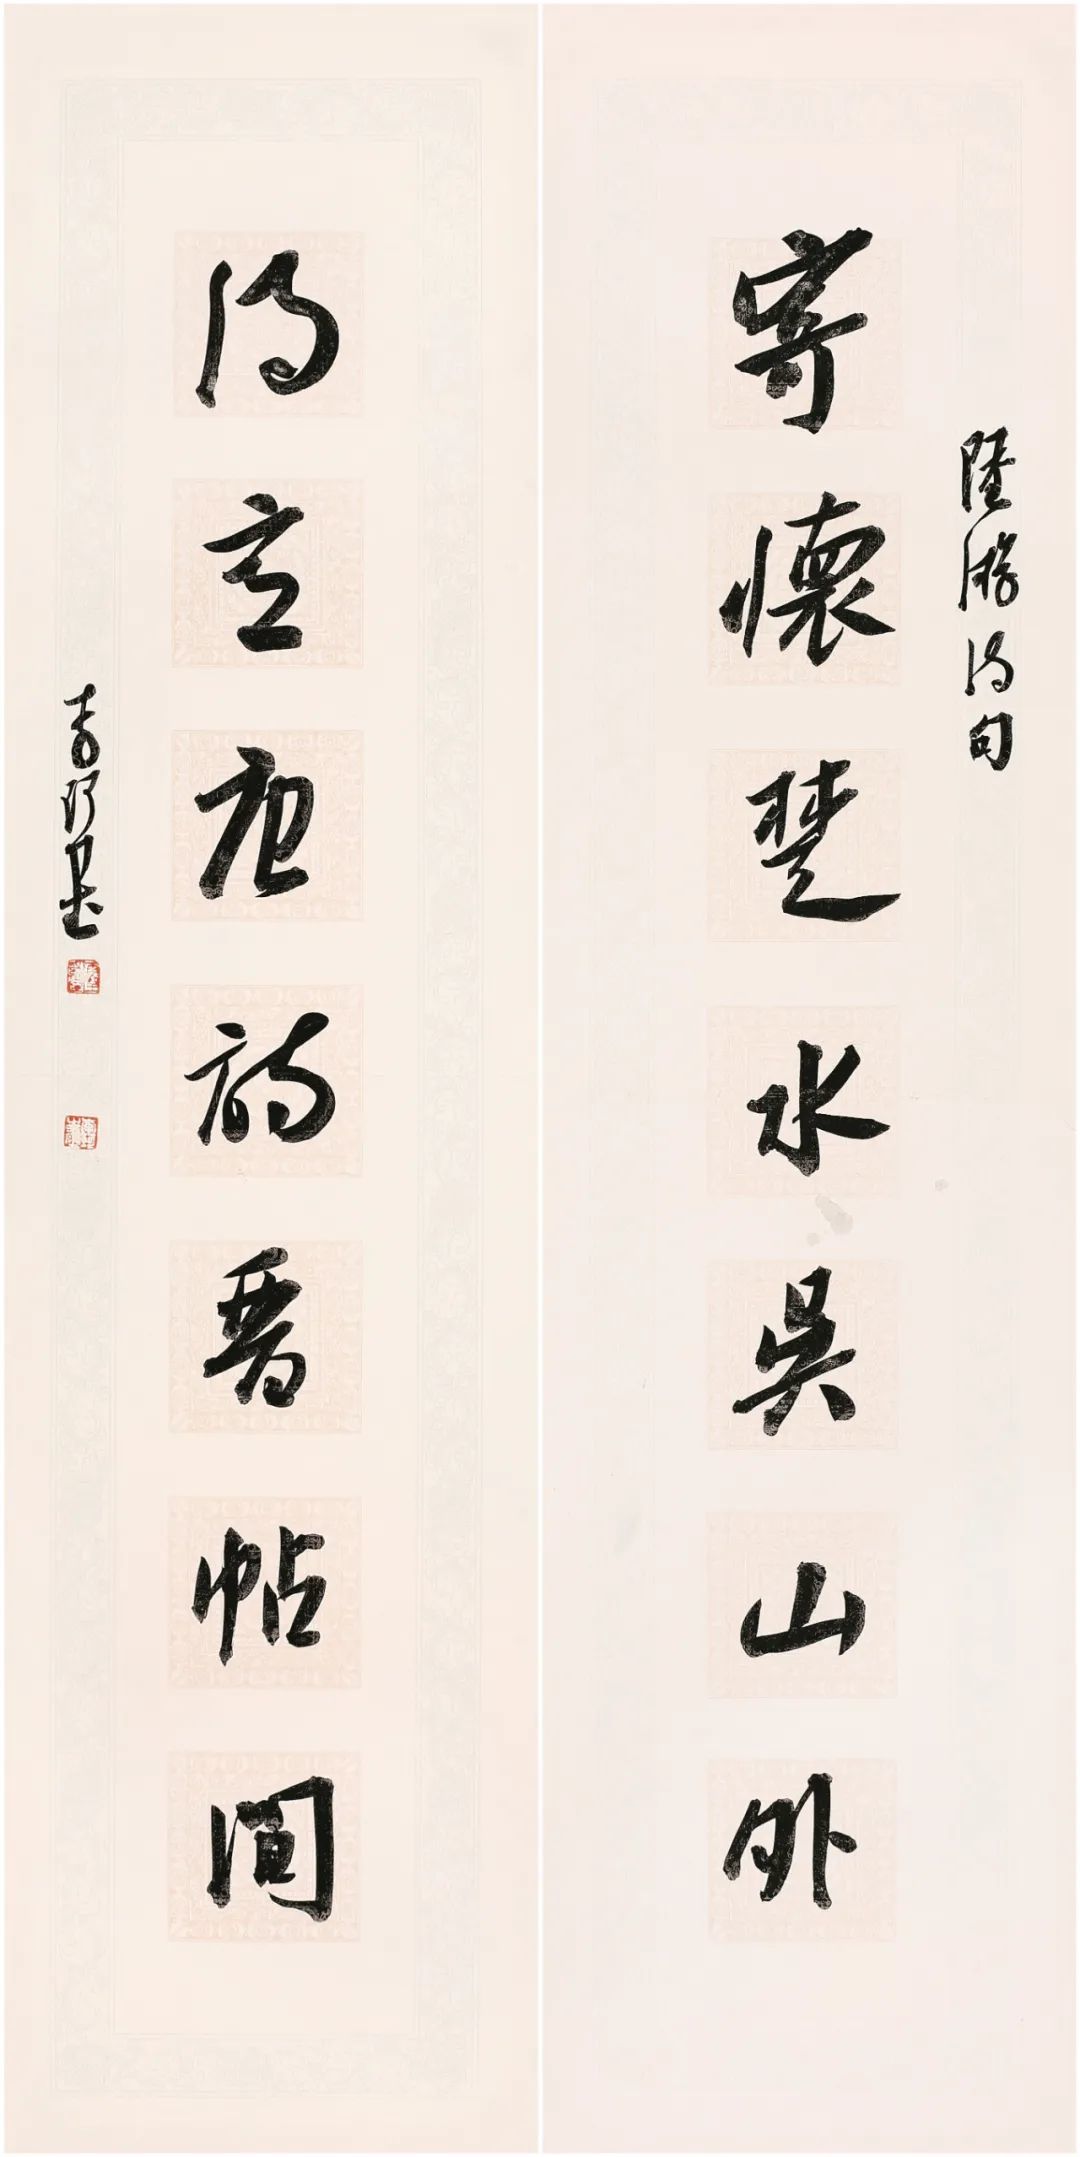 陸游詩句
寄懷楚水吳山外
得意唐詩晉帖間